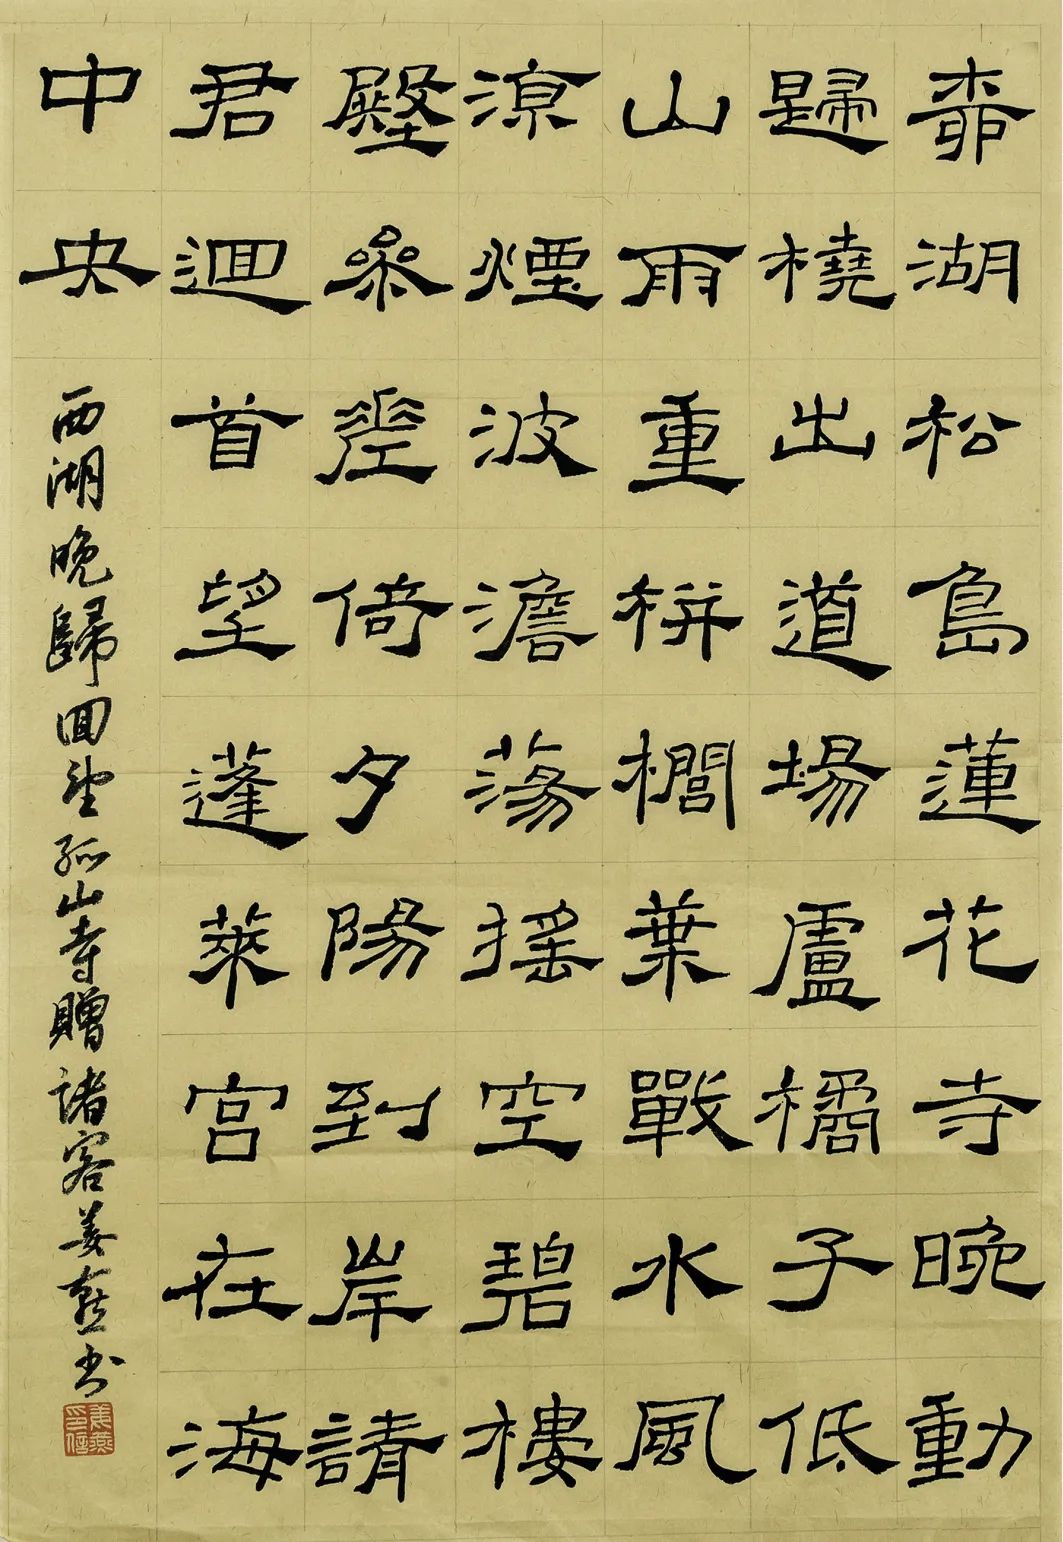 桺湖松島蓮花寺晚動
歸橈出道場盧橘子低
山雨重栟櫚葉戰水風
涼煙波澹蕩搖空碧樓
殿參差倚夕陽到岸請
君迴首望蓬萊宮在海
中央
西湖晚歸回望孤山寺贈諸客姜燕书
姜燕印信